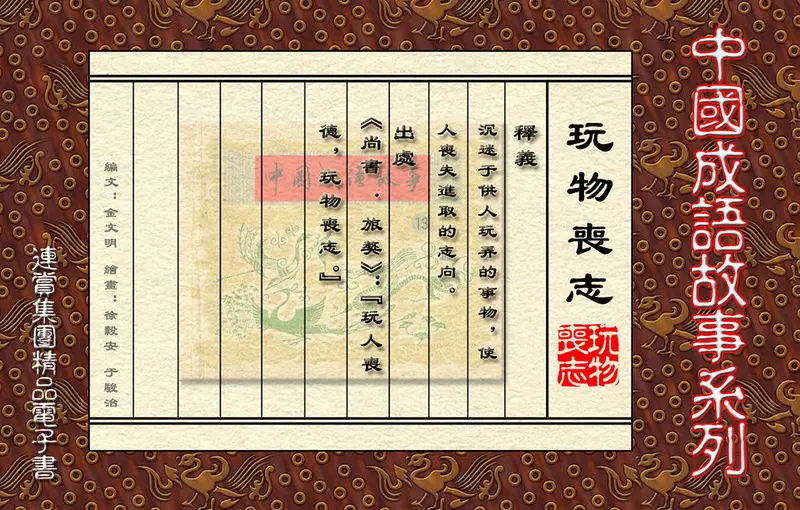 中國成語故事系列
玩物喪志
玩物
喪志
釋義
沉迷于供人玩弄的事物，使
人喪失進取的志向。
出處
《尚書．旅獒》：『玩人喪
德，玩物喪志。』
編文：金文明 繪畫：徐毅安 于駿治
連嘗集團精品電子書
中國成語故事
13